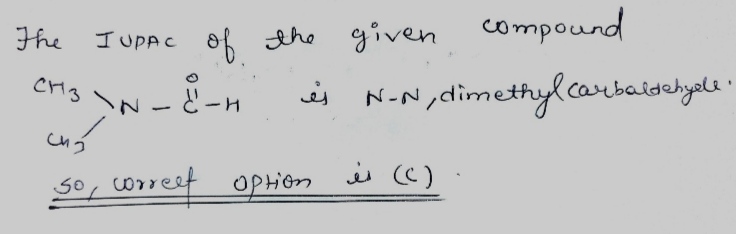 The IUPAC of the given compound
O
CH3 \ N - C - H is N-N, dimethylcarbaldehyde.
CH3
so, correct option is (C).